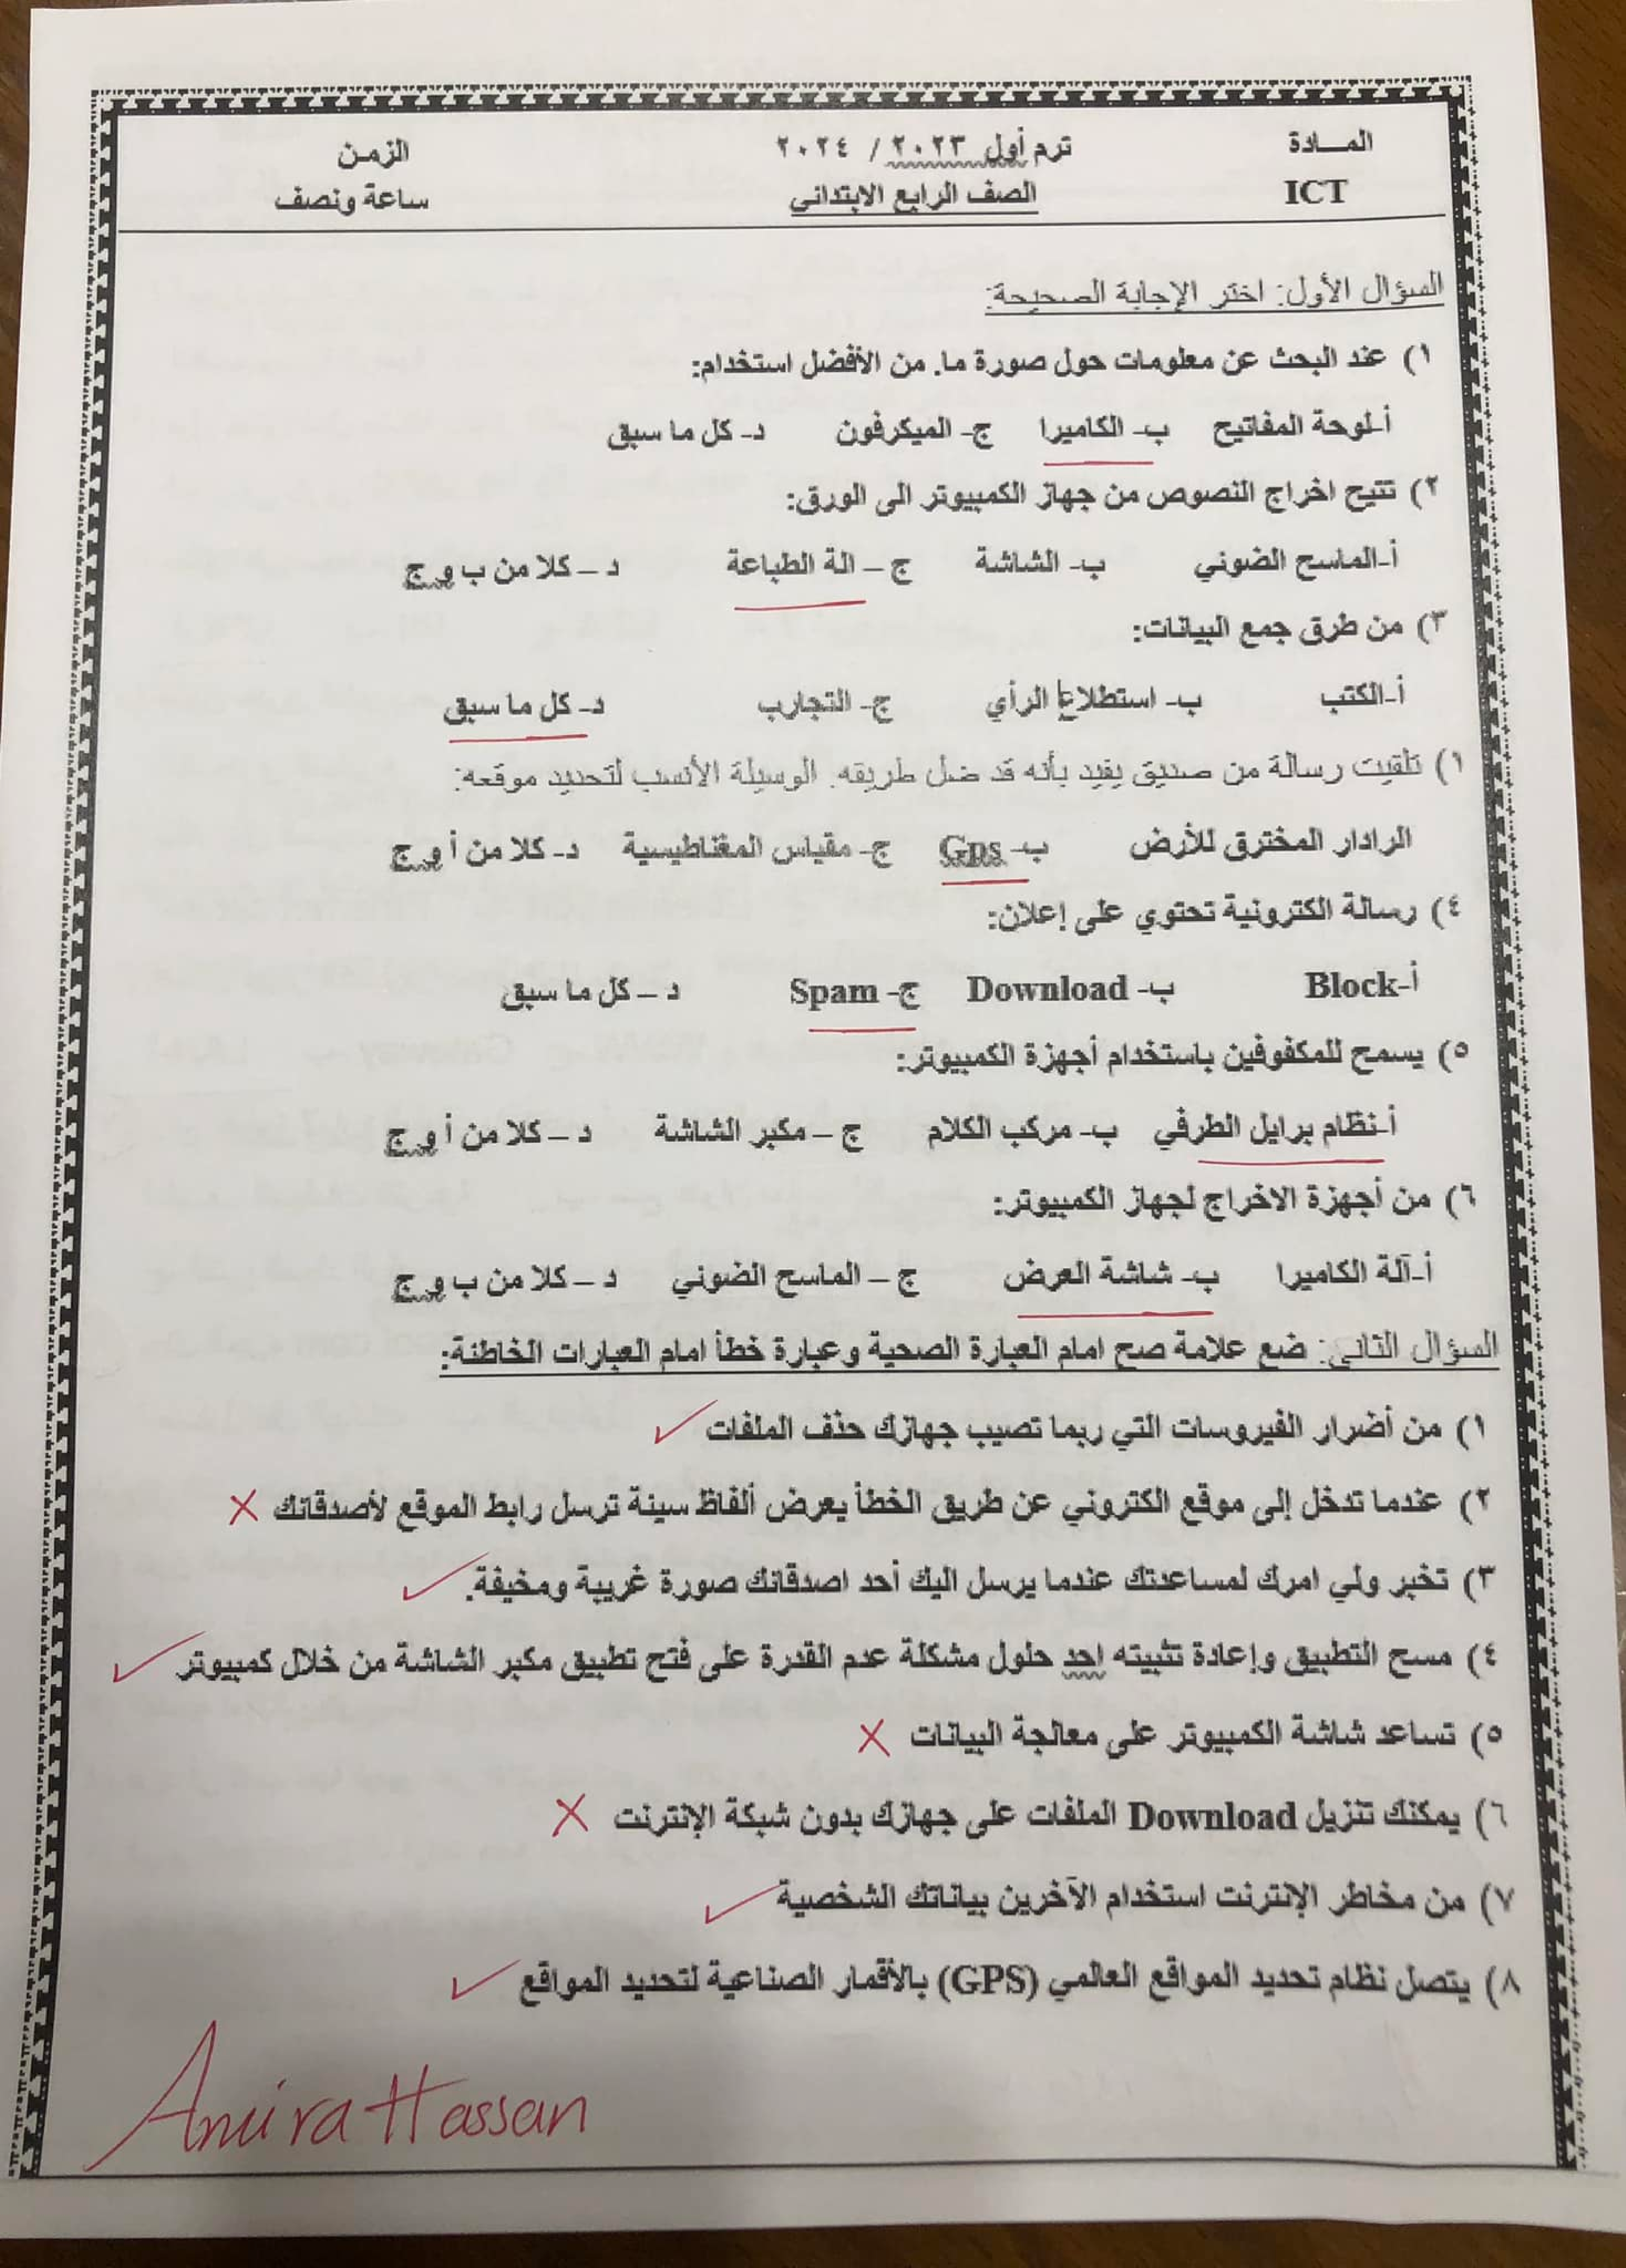 المـــادة ترم أول ٢٠٢٣ / ٢٠٢٤ الزمن
ICT الصف الرابع الابتدائي ساعة ونصف
السؤال الأول: اختر الإجابة الصحيحة:
١) عند البحث عن معلومات حول صورة ما. من الأفضل استخدام:
أ-لوحة المفاتيح ب- الكاميرا ج- الميكرفون د- كل ما سبق
٢) تتيح اخراج النصوص من جهاز الكمبيوتر الى الورق:
أ-الماسح الضوئي ب- الشاشة ج – الة الطباعة د – كلا من ب و ج
٣) من طرق جمع البيانات:
أ-الكتب ب- استطلاع الرأي ج- التجارب د- كل ما سبق
١) تلقيت رسالة من صديق يفيد بأنه قد ضل طريقه. الوسيلة الأنسب لتحديد موقعه:
الرادار المخترق للأرض ب- Gps ج- مقياس المغناطيسية د- كلا من أ و ج
٤) رسالة الكترونية تحتوي على إعلان:
أ-Block ب- Download ج- Spam د – كل ما سبق
٥) يسمح للمكفوفين باستخدام أجهزة الكمبيوتر:
أ-نظام برايل الطرفي ب- مركب الكلام ج – مكبر الشاشة د – كلا من أ و ج
٦) من أجهزة الاخراج لجهاز الكمبيوتر:
أ-آلة الكاميرا ب- شاشة العرض ج – الماسح الضوئي د – كلا من ب و ج
السؤال الثاني: ضع علامة صح امام العبارة الصحية وعبارة خطأ امام العبارات الخاطئة:
١) من أضرار الفيروسات التي ربما تصيب جهازك حذف الملفات ✓
٢) عندما تدخل إلى موقع الكتروني عن طريق الخطأ يعرض ألفاظ سيئة ترسل رابط الموقع لأصدقائك ✗
٣) تخبر ولي امرك لمساعدتك عندما يرسل اليك أحد اصدقائك صورة غريبة ومخيفة. ✓
٤) مسح التطبيق وإعادة تثبيته احد حلول مشكلة عدم القدرة على فتح تطبيق مكبر الشاشة من خلال كمبيوتر ✓
٥) تساعد شاشة الكمبيوتر على معالجة البيانات ✗
٦) يمكنك تنزيل Download الملفات على جهازك بدون شبكة الإنترنت ✗
٧) من مخاطر الإنترنت استخدام الآخرين بياناتك الشخصية ✓
٨) يتصل نظام تحديد المواقع العالمي (GPS) بالأقمار الصناعية لتحديد المواقع ✓
Amira Hassan